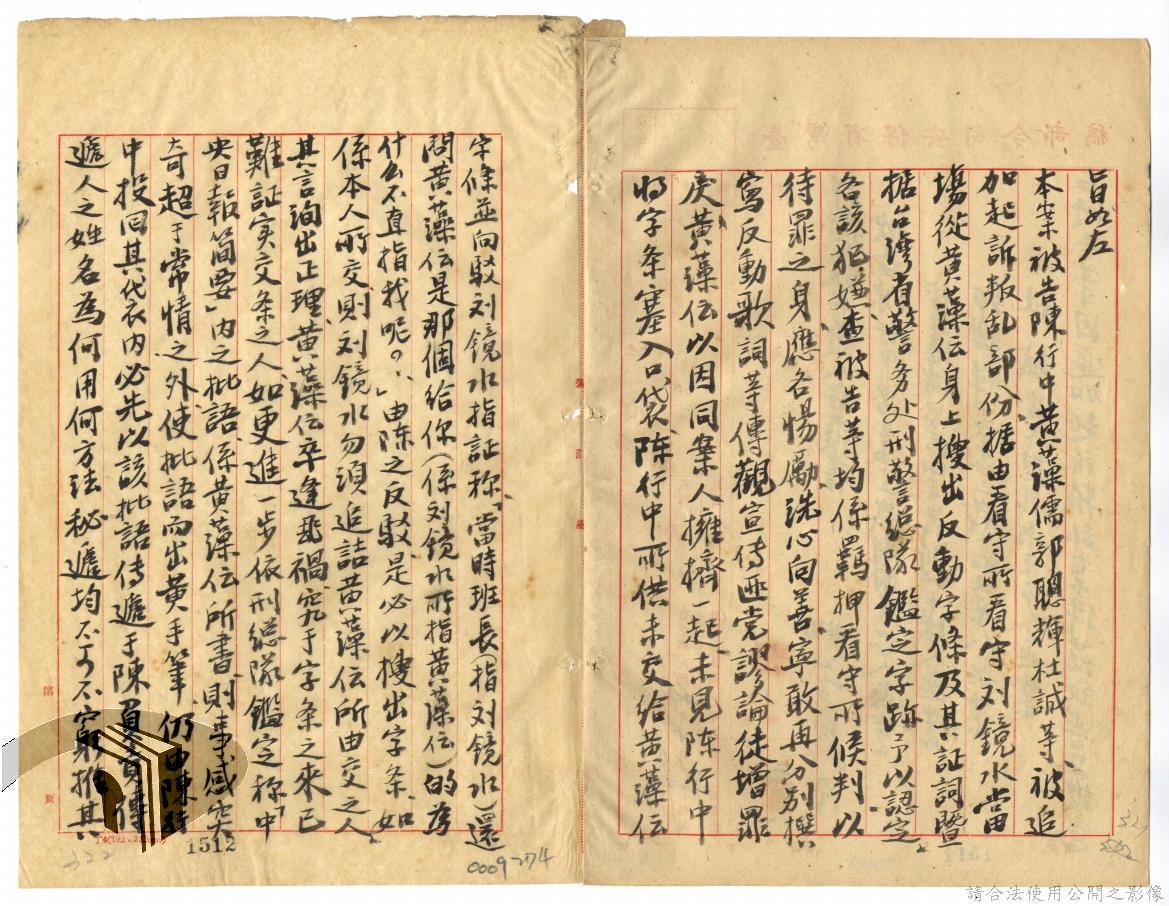 旨如左
本案被告陳行中黃藻儒郭聰輝杜誠等、被追
加起訴叛乱部份、據由看守所看守刘鏡水當
場從黃藻伝身上搜出反動字條及其証詞暨
据台灣省警务处刑警総隊鑑定字跡予以認定
各該犯嫌、查被告等均係羈押看守所候判、以
待罪之身、應各惕勵、洗心向善、寧敢再分別撰
寫反動歌詞等傳觀宣传匪党謬論徒增罪
戾、黃藻伝以因同案人擁擠一起、未見陈行中
将字条塞入口袋、陈行中所供未交給黃藻伝
字條並向駁刘鏡水指証称、「當時班長(指刘鏡水)還
問黃藻伝是那個給你(係刘鏡水所指黃藻伝)的為
什么不直指我呢？」由陈之反駁、是必以搜出字条、如
係本人所交、則刘鏡水勿須追詰黃藻伝所由交之人
其言洵出正理、黃藻伝卒逢飛禍、究于字条之來已
難証实交条之人、如更進一步依刑総隊鑑定称「中
央日報简要」内之批語係黃藻伝所書、則事感突
奇、超于常情之外、使批語而出黃手筆、仍由陳行
中投回其代衣内必先以該批語传遞于陳、買
遞人之姓名為何用何方法秘遞均不可不窮推其
第 頁
1512
0009-274
322
請合法使用公開之影像